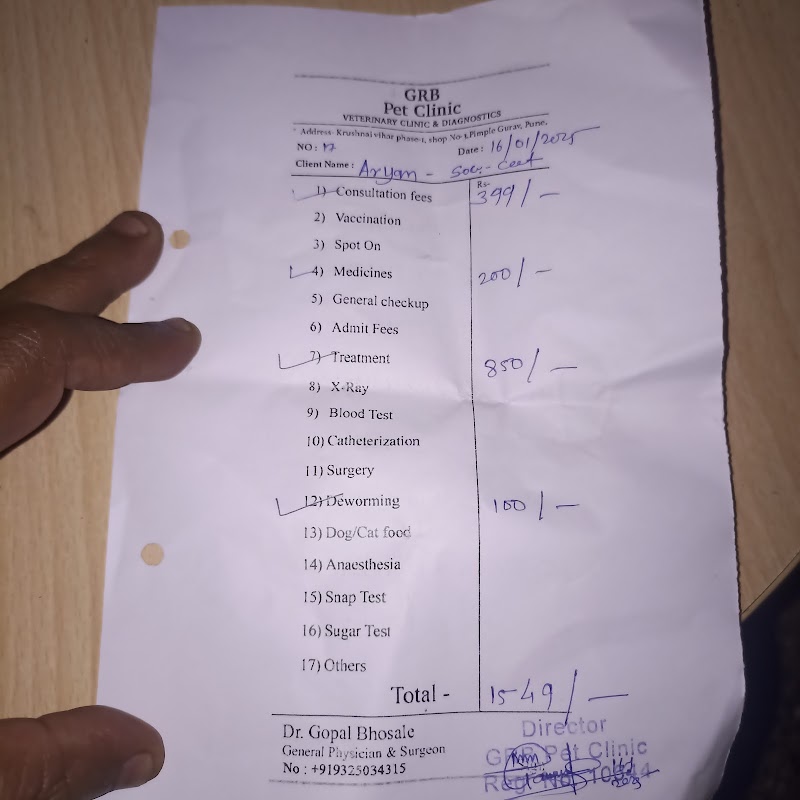 GRB
Pet Clinic
VETERINARY CLINIC & DIAGNOSTICS
Address- Krushnai vihar phase-1, shop No-1, Pimple Gurav, Pune.
NO: 17 Date: 16/01/2025
Client Name: Aryan -
Rs-
1) Consultation fees 399/-
2) Vaccination
3) Spot On
4) Medicines 200/-
5) General checkup
6) Admit Fees
7) Treatment 850/-
8) X-Ray
9) Blood Test
10) Catheterization
11) Surgery
12) Deworming 100/-
13) Dog/Cat food
14) Anaesthesia
15) Snap Test
16) Sugar Test
17) Others
Total - 1549/-
Dr. Gopal Bhosale
General Physician & Surgeon
No: +919325034315
Director
GRB Pet Clinic